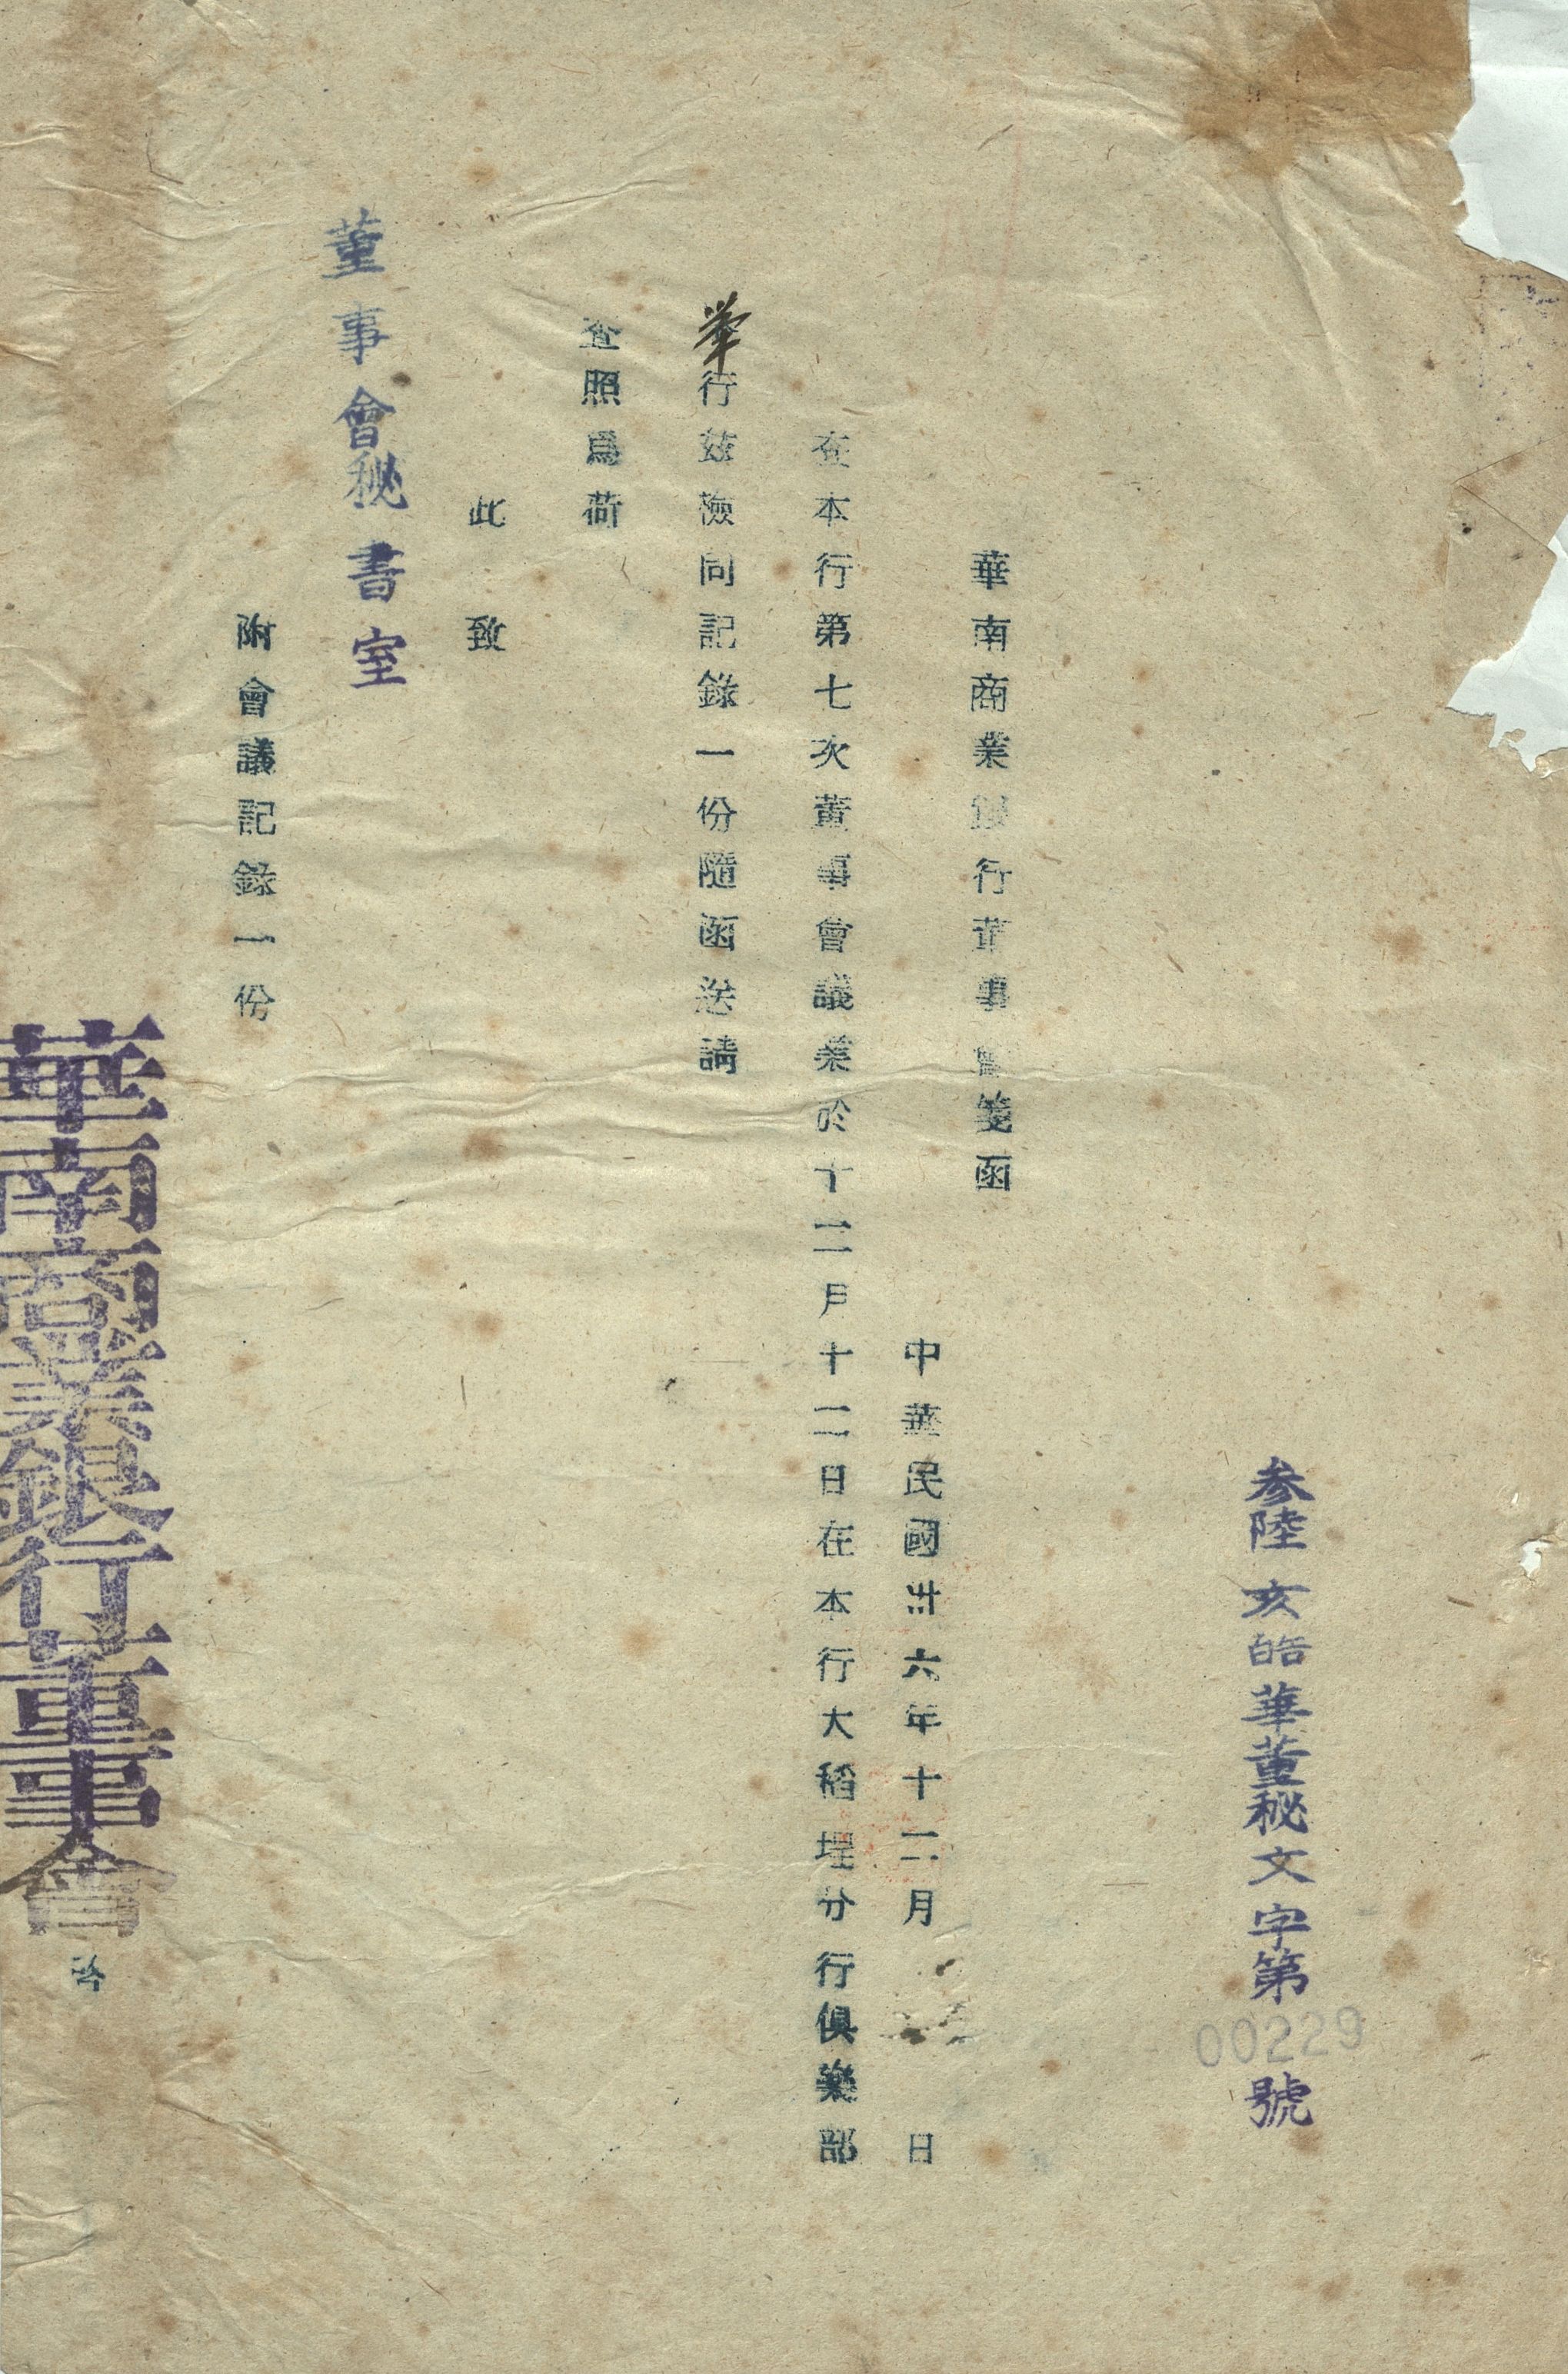 参陸亥皓華董秘文字第00229號
華南商業銀行董事會箋函
中華民國卅六年十二月 日
查本行第七次董事會議業於十二月十二日在本行大稻埕分行俱樂部
舉行茲檢同記錄一份隨函送請
查照爲荷
此致
董事會秘書室
附會議記錄一份
華南商業銀行董事會